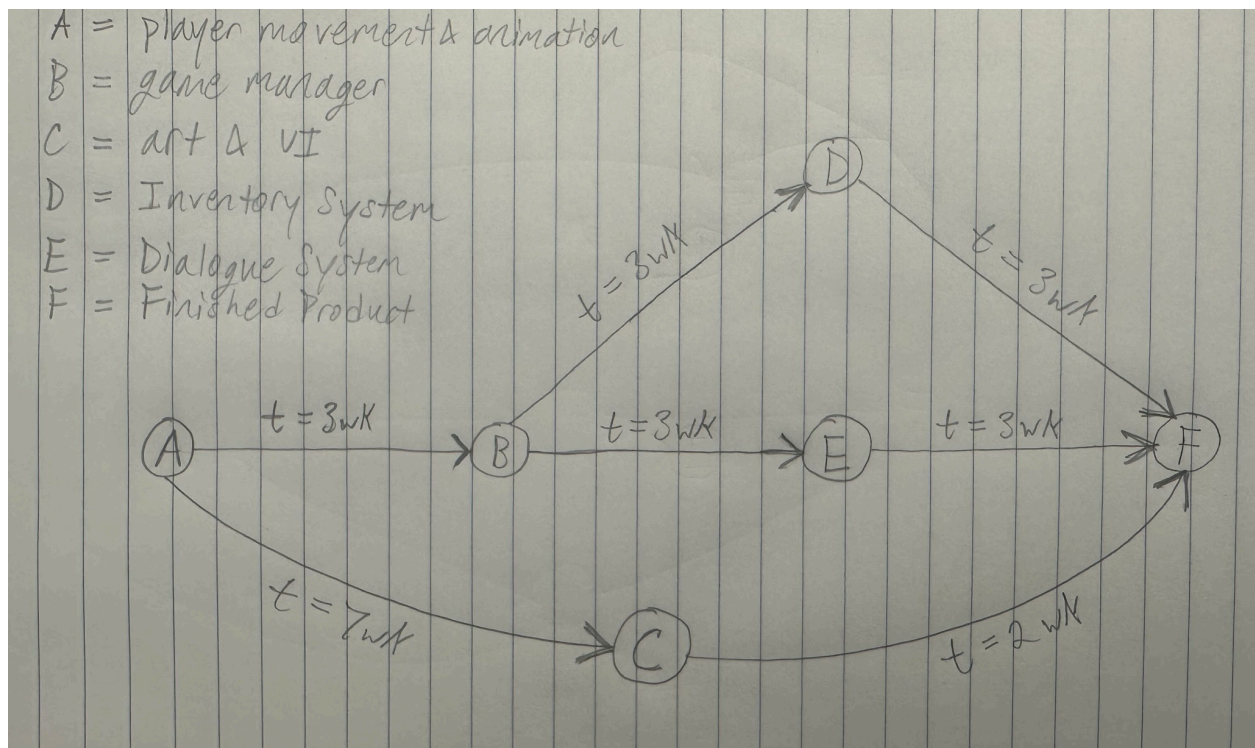 A = player movement & animation
B = game manager
C = art & UI
D = Inventory System
E = Dialogue System
F = Finished Product
D
t = 3wk
t = 3wk
t = 3wk
t = 3wk
t = 3wk
A
B
E
F
t = 7wk
C
t = 2wk